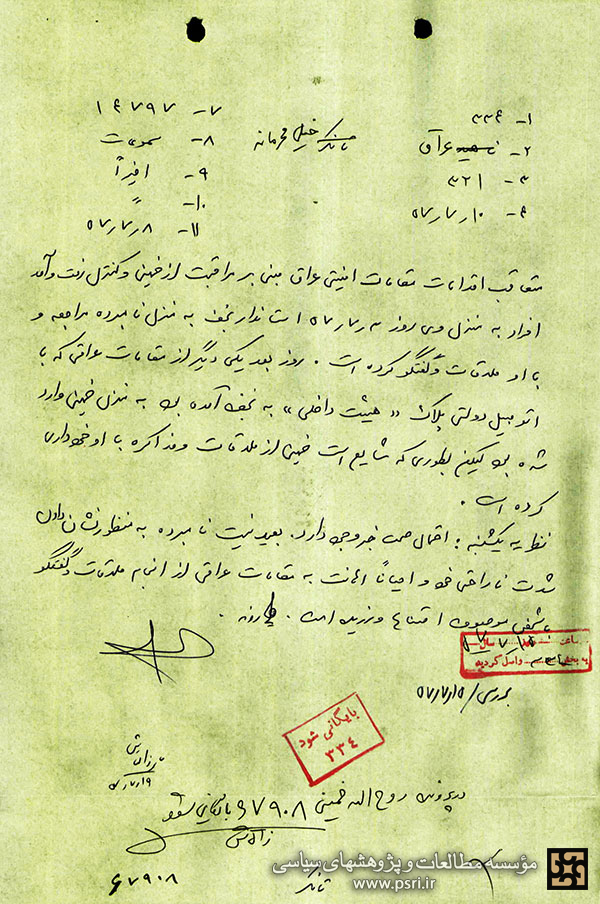 ۱- ۳۳۴
۲- عراق
۳- ۳۲۱
۴- ۱۰/۷/۵۷
خیلی محرمانه
۷- ۱۶۷۹۷
۸- مسموعات
۹- اخیراً
۱۰- "
۱۱- ۸/۷/۵۷
متعاقب اقدامات مقامات امنیتی عراق مبنی بر مراقبت از خمینی و کنترل رفت و آمد
افراد به منزل وی روز ۳/۷/۵۷ استاندار نجف به منزل نامبرده مراجعه و
با او ملاقات و گفتگو کرده است. روز بعد یکی دیگر از مقامات عراقی که با
اتومبیل دولتی پلاک «هیئت داخلی» به نجف آمده بود به منزل خمینی وارد
شده بود لیکن بطوری که شایع است خمینی از ملاقات و مذاکره با او خودداری
کرده است.
نظریه یکشنبه: احتمال صحت خبر وجود دارد. بعید نیست نامبرده به منظور نشان دادن
شدت ناراحتی خود و احیاناً اهانت به مقامات عراقی از انجام ملاقات و گفتگو
با شخص موصوف امتناع ورزیده است.
ساعت سال
به بخش ۳۳۴ واصل گردید
بررسی ۱۵/۷/۵۷
بایگانی شود
۳۳۴
۱۹/۷/۵۷
در پرونده روح اله خمینی ۶۷۹۰۸ بایگانی شود
۶۷۹۰۸
مؤسسه مطالعات و پژوهشهای سیاسی
www.psri.ir